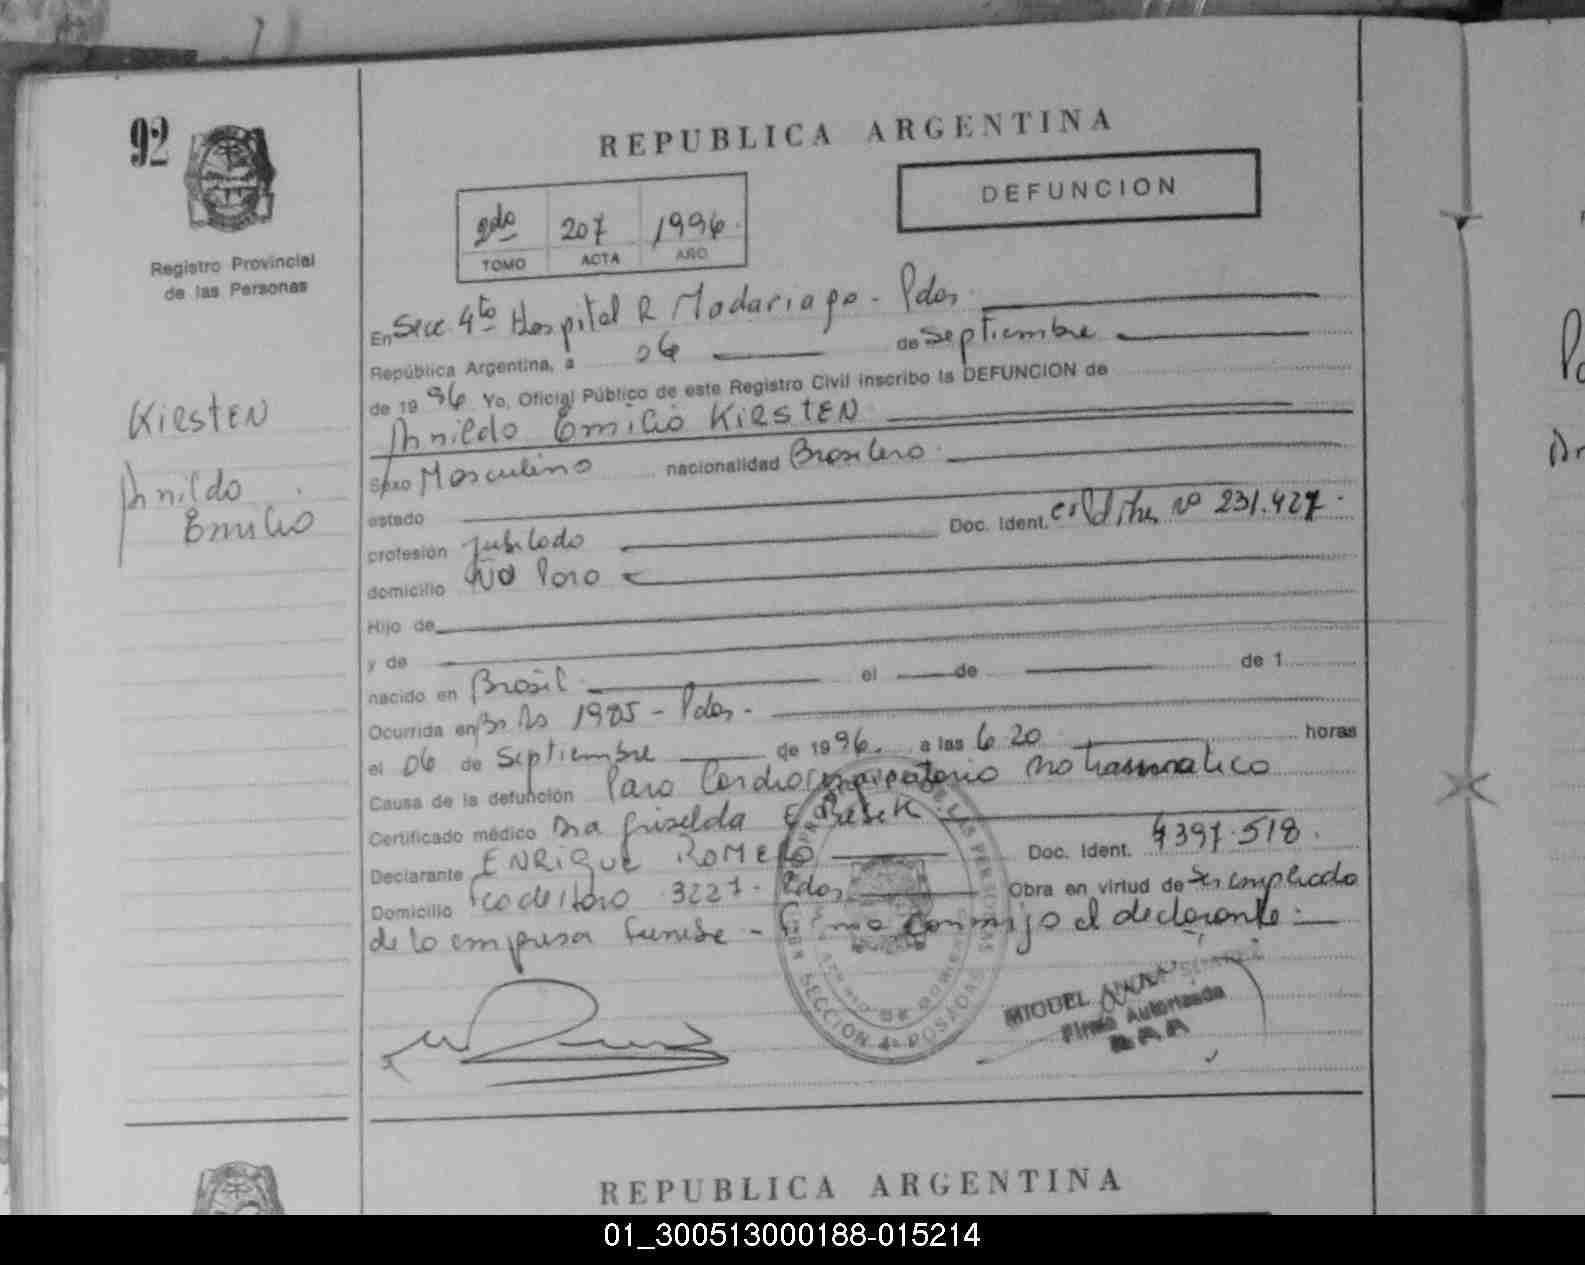 92
REPUBLICA ARGENTINA
DEFUNCION
2do 207 1996
TOMO ACTA AÑO
Registro Provincial
de las Personas
En Secc 4to Hospital R Madariaga - Pdas
República Argentina, a 06 de Septiembre
de 1996 Yo, Oficial Público de este Registro Civil inscribo la DEFUNCION de
Arnildo Emilio KIRSTEN
KIRSTEN
Arnildo
Emilio
Sexo Masculino nacionalidad Brasilero
estado
profesión Jubilado Doc. Ident. Nº 231.427
domicilio
Hijo de
y de
nacido en Brasil el de de 1
Ocurrida en 1985 - Pdas.
el 06 de Septiembre de 1996. a las 6 20 horas
Causa de la defunción Paro Cardiorespiratorio no traumatico
Certificado médico Dra Griselda E
Declarante ENRIQUE ROMERO Doc. Ident. 4397.518.
Domicilio 3221 - Pdas Obra en virtud de Ser empleado
de la empresa funebre - Firma conmigo el declarante:
SECCION 4ª POSADAS
MIGUEL
Firma Autorizada
REPUBLICA ARGENTINA
01_300513000188-015214